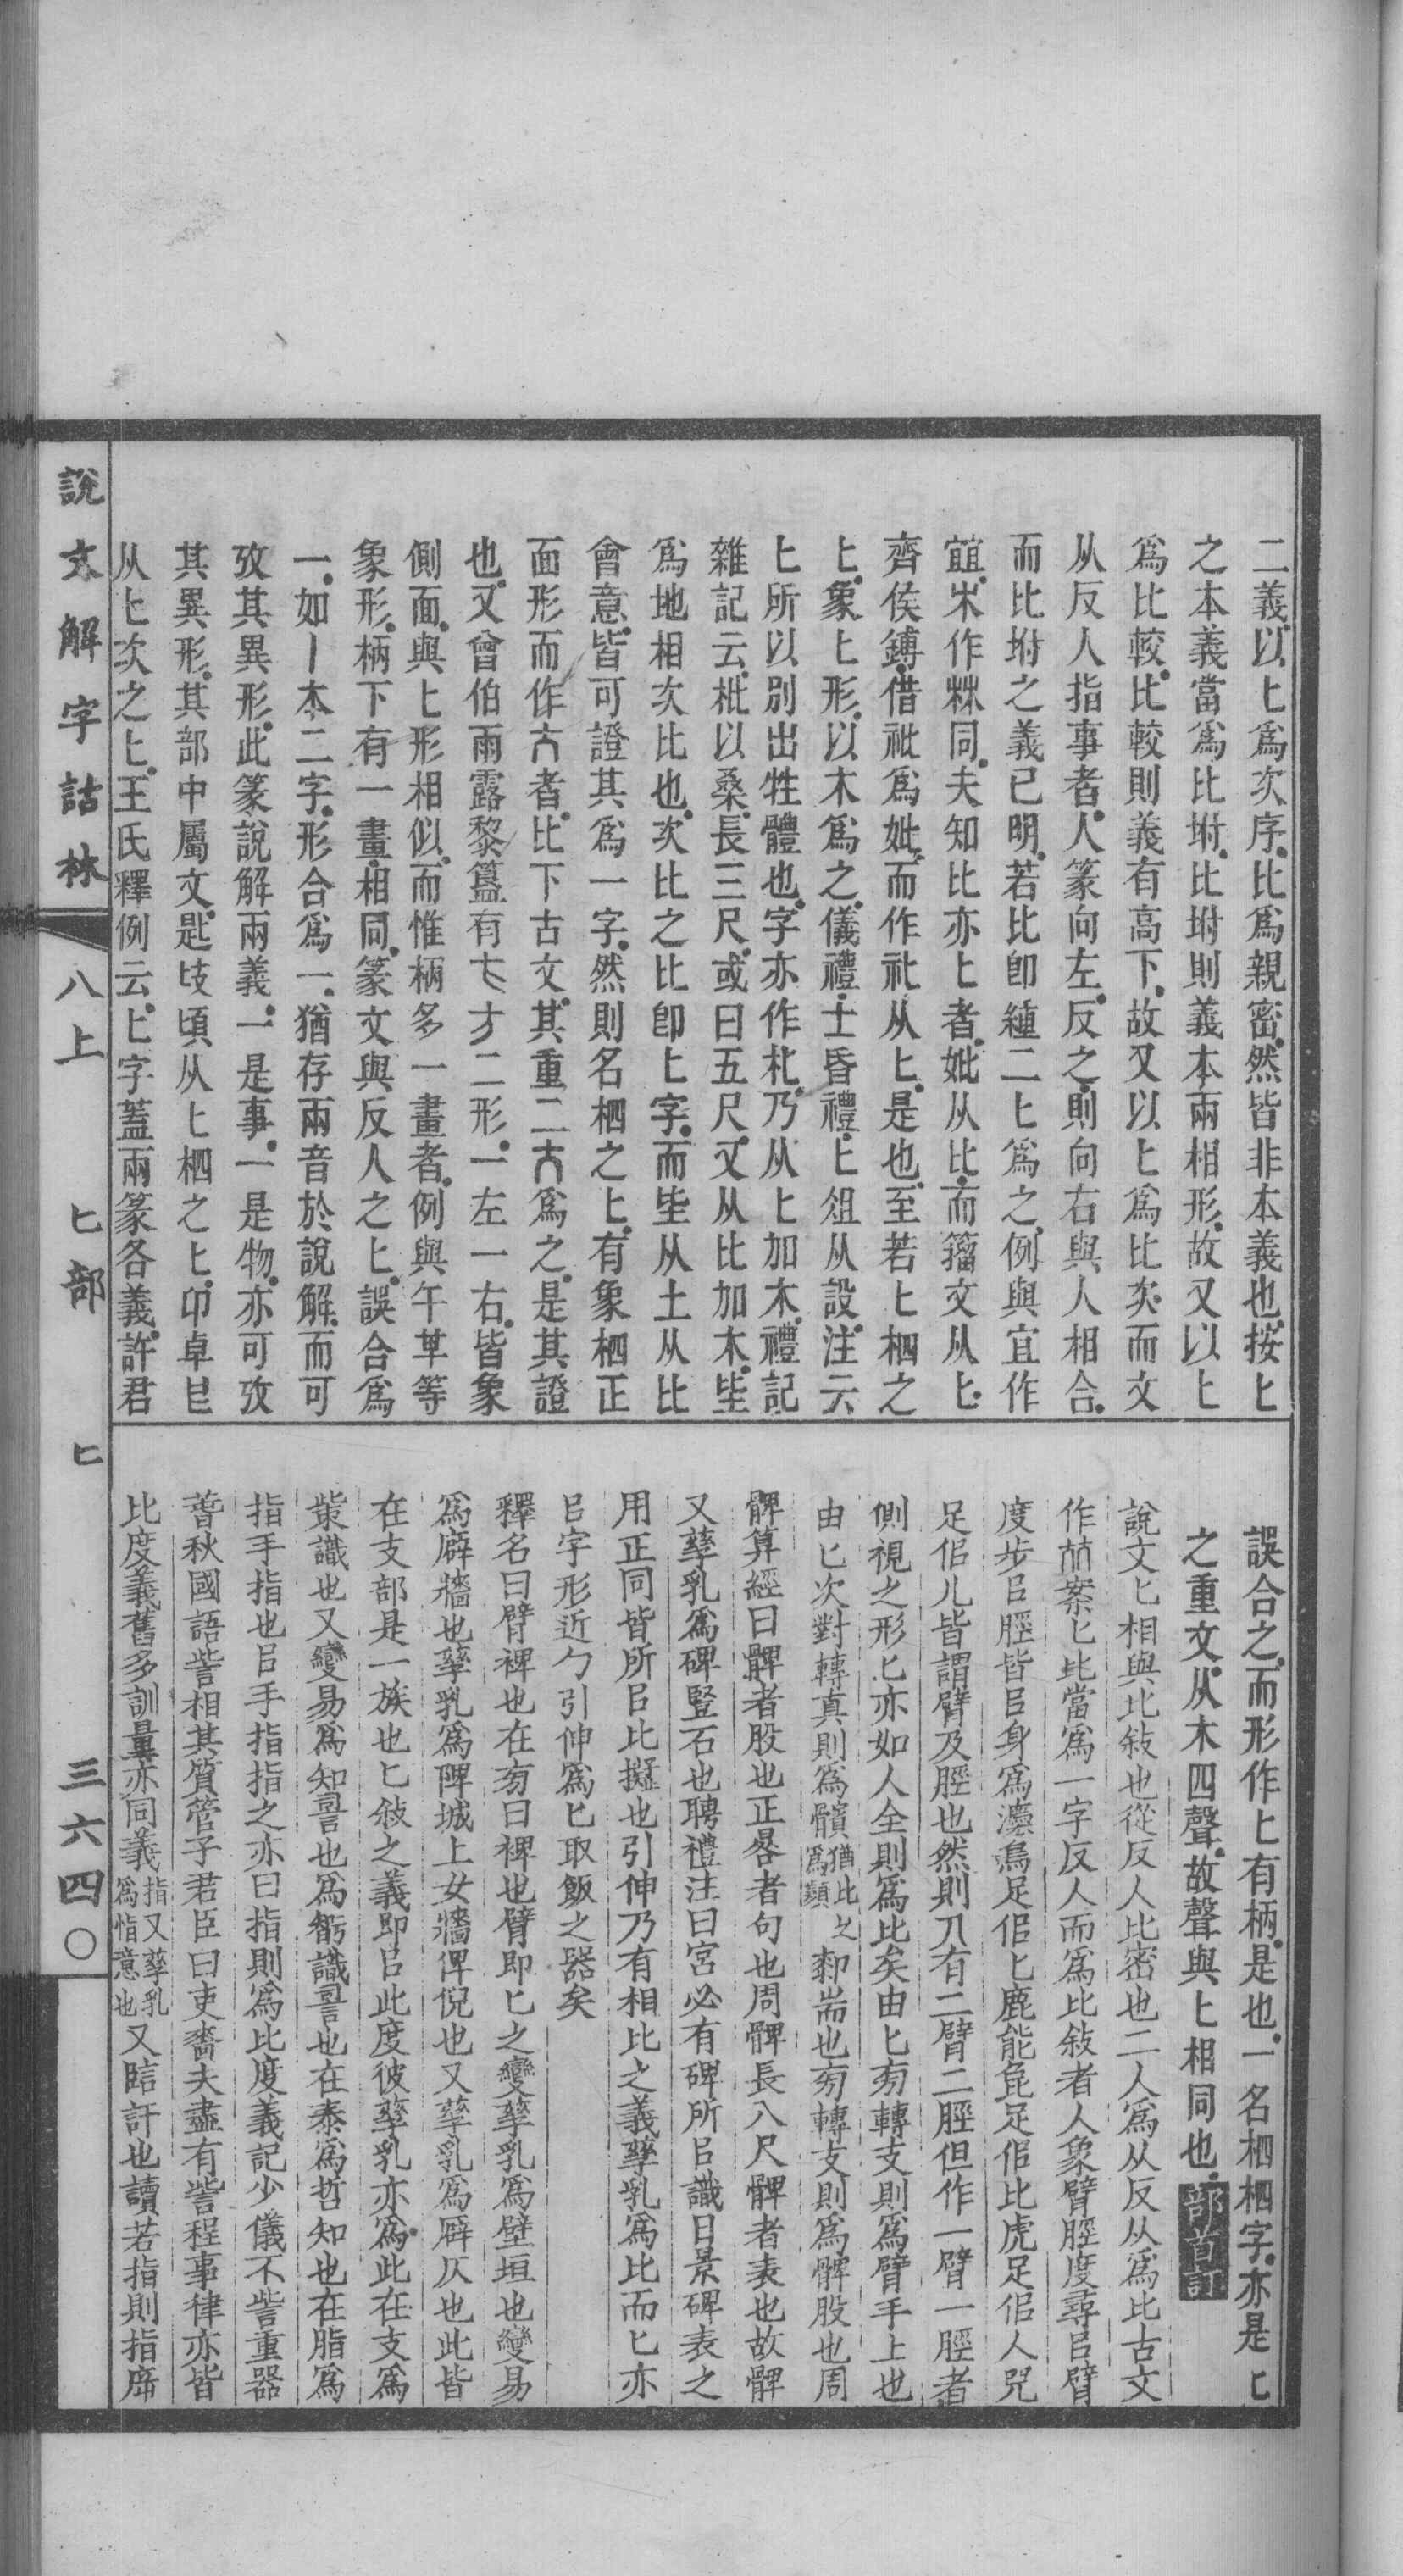 二義。以匕爲次序。比爲親密。然皆非本義也。按匕
之本義當爲比坿。比坿則義本兩相形。故又以匕
爲比較。比較則義有高下。故又以匕爲比次。而文
从反人指事者。人篆向左。反之。則向右與人相合。
而比坿之義已明。若比卽緟二匕爲之。例與宜作
宜。𣎳作𣏟同。夫知比亦匕者。妣从比。而籀文从匕。
齊侯鎛。借祉爲妣。而作礼从匕。是也。至若匕柶之
匕。象匕形。以木爲之。儀禮。士昏禮。匕俎从設。注云
匕所以別出牲體也。字亦作朼。乃从匕加木。禮記
雜記云。枇以桑。長三尺。或曰五尺。又从比加木。坒
爲地相次比也。次比之比卽匕字。而坒从土从比
會意。皆可證其爲一字。然則名柶之匕。有象柶正
面形而作者。比下古文。其重二爲之。是其證
也。又曾伯雨露黎簠有二形。一左一右。皆象
側面。與匕形相似。而惟柄多一畫者。例與午革等
象形。柄下有一畫相同。篆文與反人之匕。誤合爲
一。如丨本二字。形合爲一。猶存兩音於說解。而可
攷其異形。此篆說解兩義。一是事。一是物。亦可攷
其異形。其部中屬文。匙𠤗頃从匕柶之匕。卬卓皀
从匕次之匕。王氏釋例云。匕字蓋兩篆各義。許君
誤合之。而形作匕有柄。是也。一名柶柶字。亦是匕
之重文。从木四聲。故聲與匕相同也。部首訂
說文匕相與比敍也從反人比密也二人爲从反从爲比古文
作𣬅案匕比當爲一字反人而爲比敍者人象臂脛度尋㠯臂
度步㠯脛皆㠯身爲灋鳥足佀匕鹿能㲋足佀比虎足佀人兕
足佀儿皆謂臂及脛也然則人有二臂二脛但作一臂一脛者
側視之形匕亦如人全則爲比矣由匕旁轉支則爲臂手上也
由匕次對轉真則爲髕猶比爲顮厀耑也旁轉支則爲髀股也周
髀算經曰髀者股也正晷者句也周髀長八尺髀者表也故髀
又孳乳爲碑豎石也聘禮注曰宮必有碑所㠯識日景碑表之
用正同皆所㠯比擬也引伸乃有相比之義孳乳爲比而匕亦
㠯字形近勹引伸爲匕取飯之器矣
釋名曰臂裨也在旁曰裨也臂即匕之變孳乳爲壁垣也變易
爲廦牆也孳乳爲陴城上女牆俾倪也又孳乳爲㕻仄也此皆
在支部是一族也匕敍之義即㠯此度彼孳乳亦爲此在支爲
策識也又變易爲知䛐也爲𥏼識䛐也在泰爲哲知也在脂爲
指手指也㠯手指指之亦曰指則爲比度義記少儀不訾重器
蒈秋國語訾相其質管子君臣曰吏嗇夫盡有訾程事律亦皆
比度義舊多訓量亦同義指又孳乳爲恉意也又䛗訐也讀若指則指席
說文解字詁林 八上 匕部 匕 三六四〇